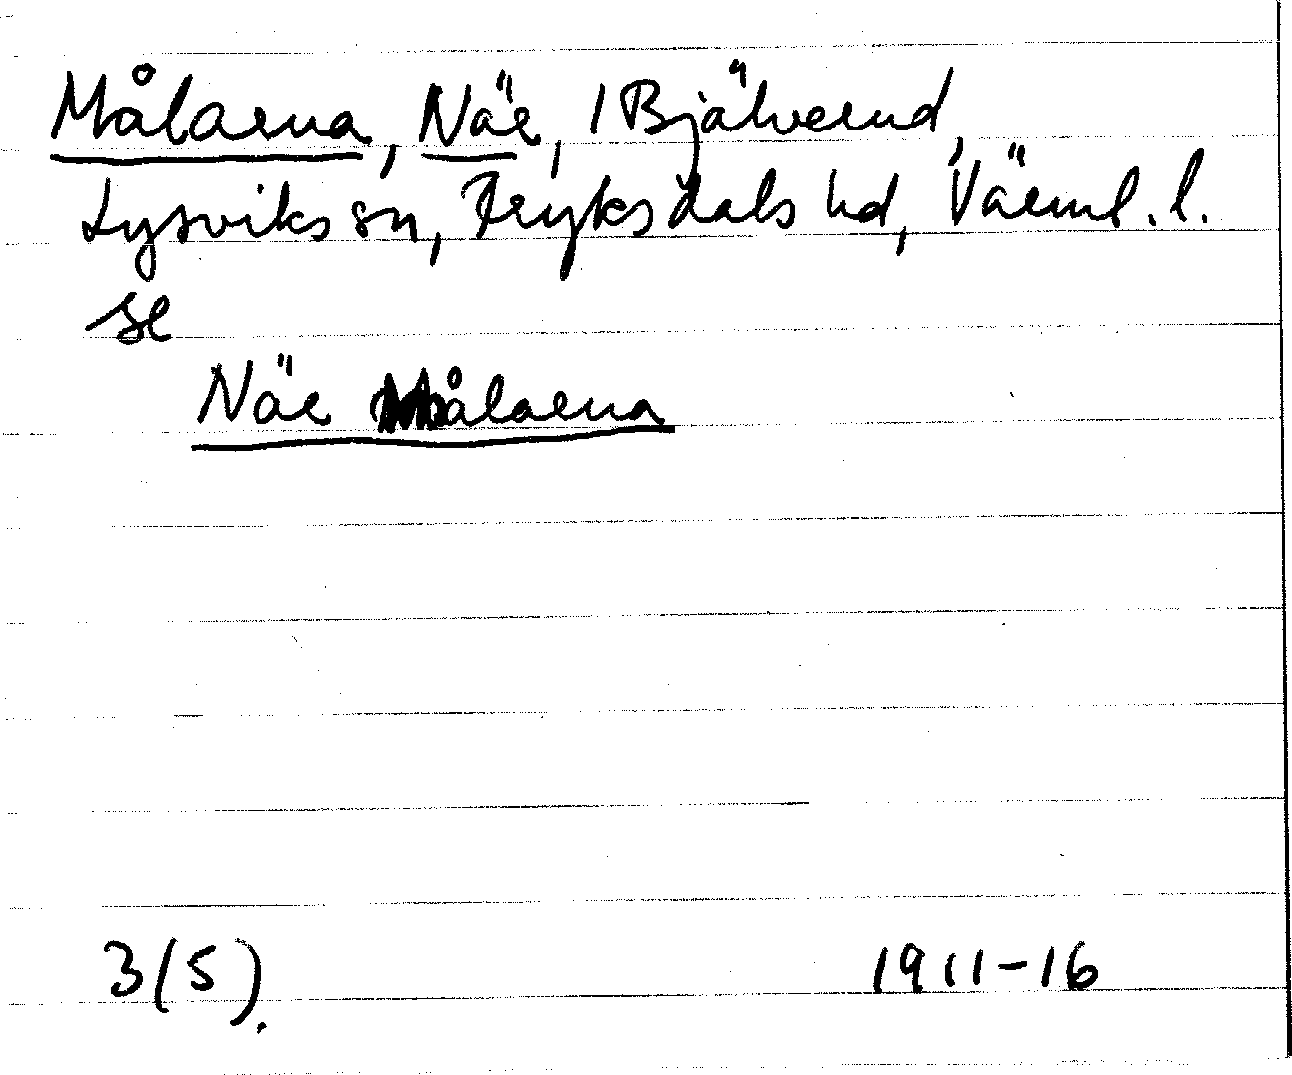 Målarna, När, 1 Bjälverud,
Lysviks sn, Fryksdals hd, Värml. l.
se
När Målarna
3(5).
1911-16